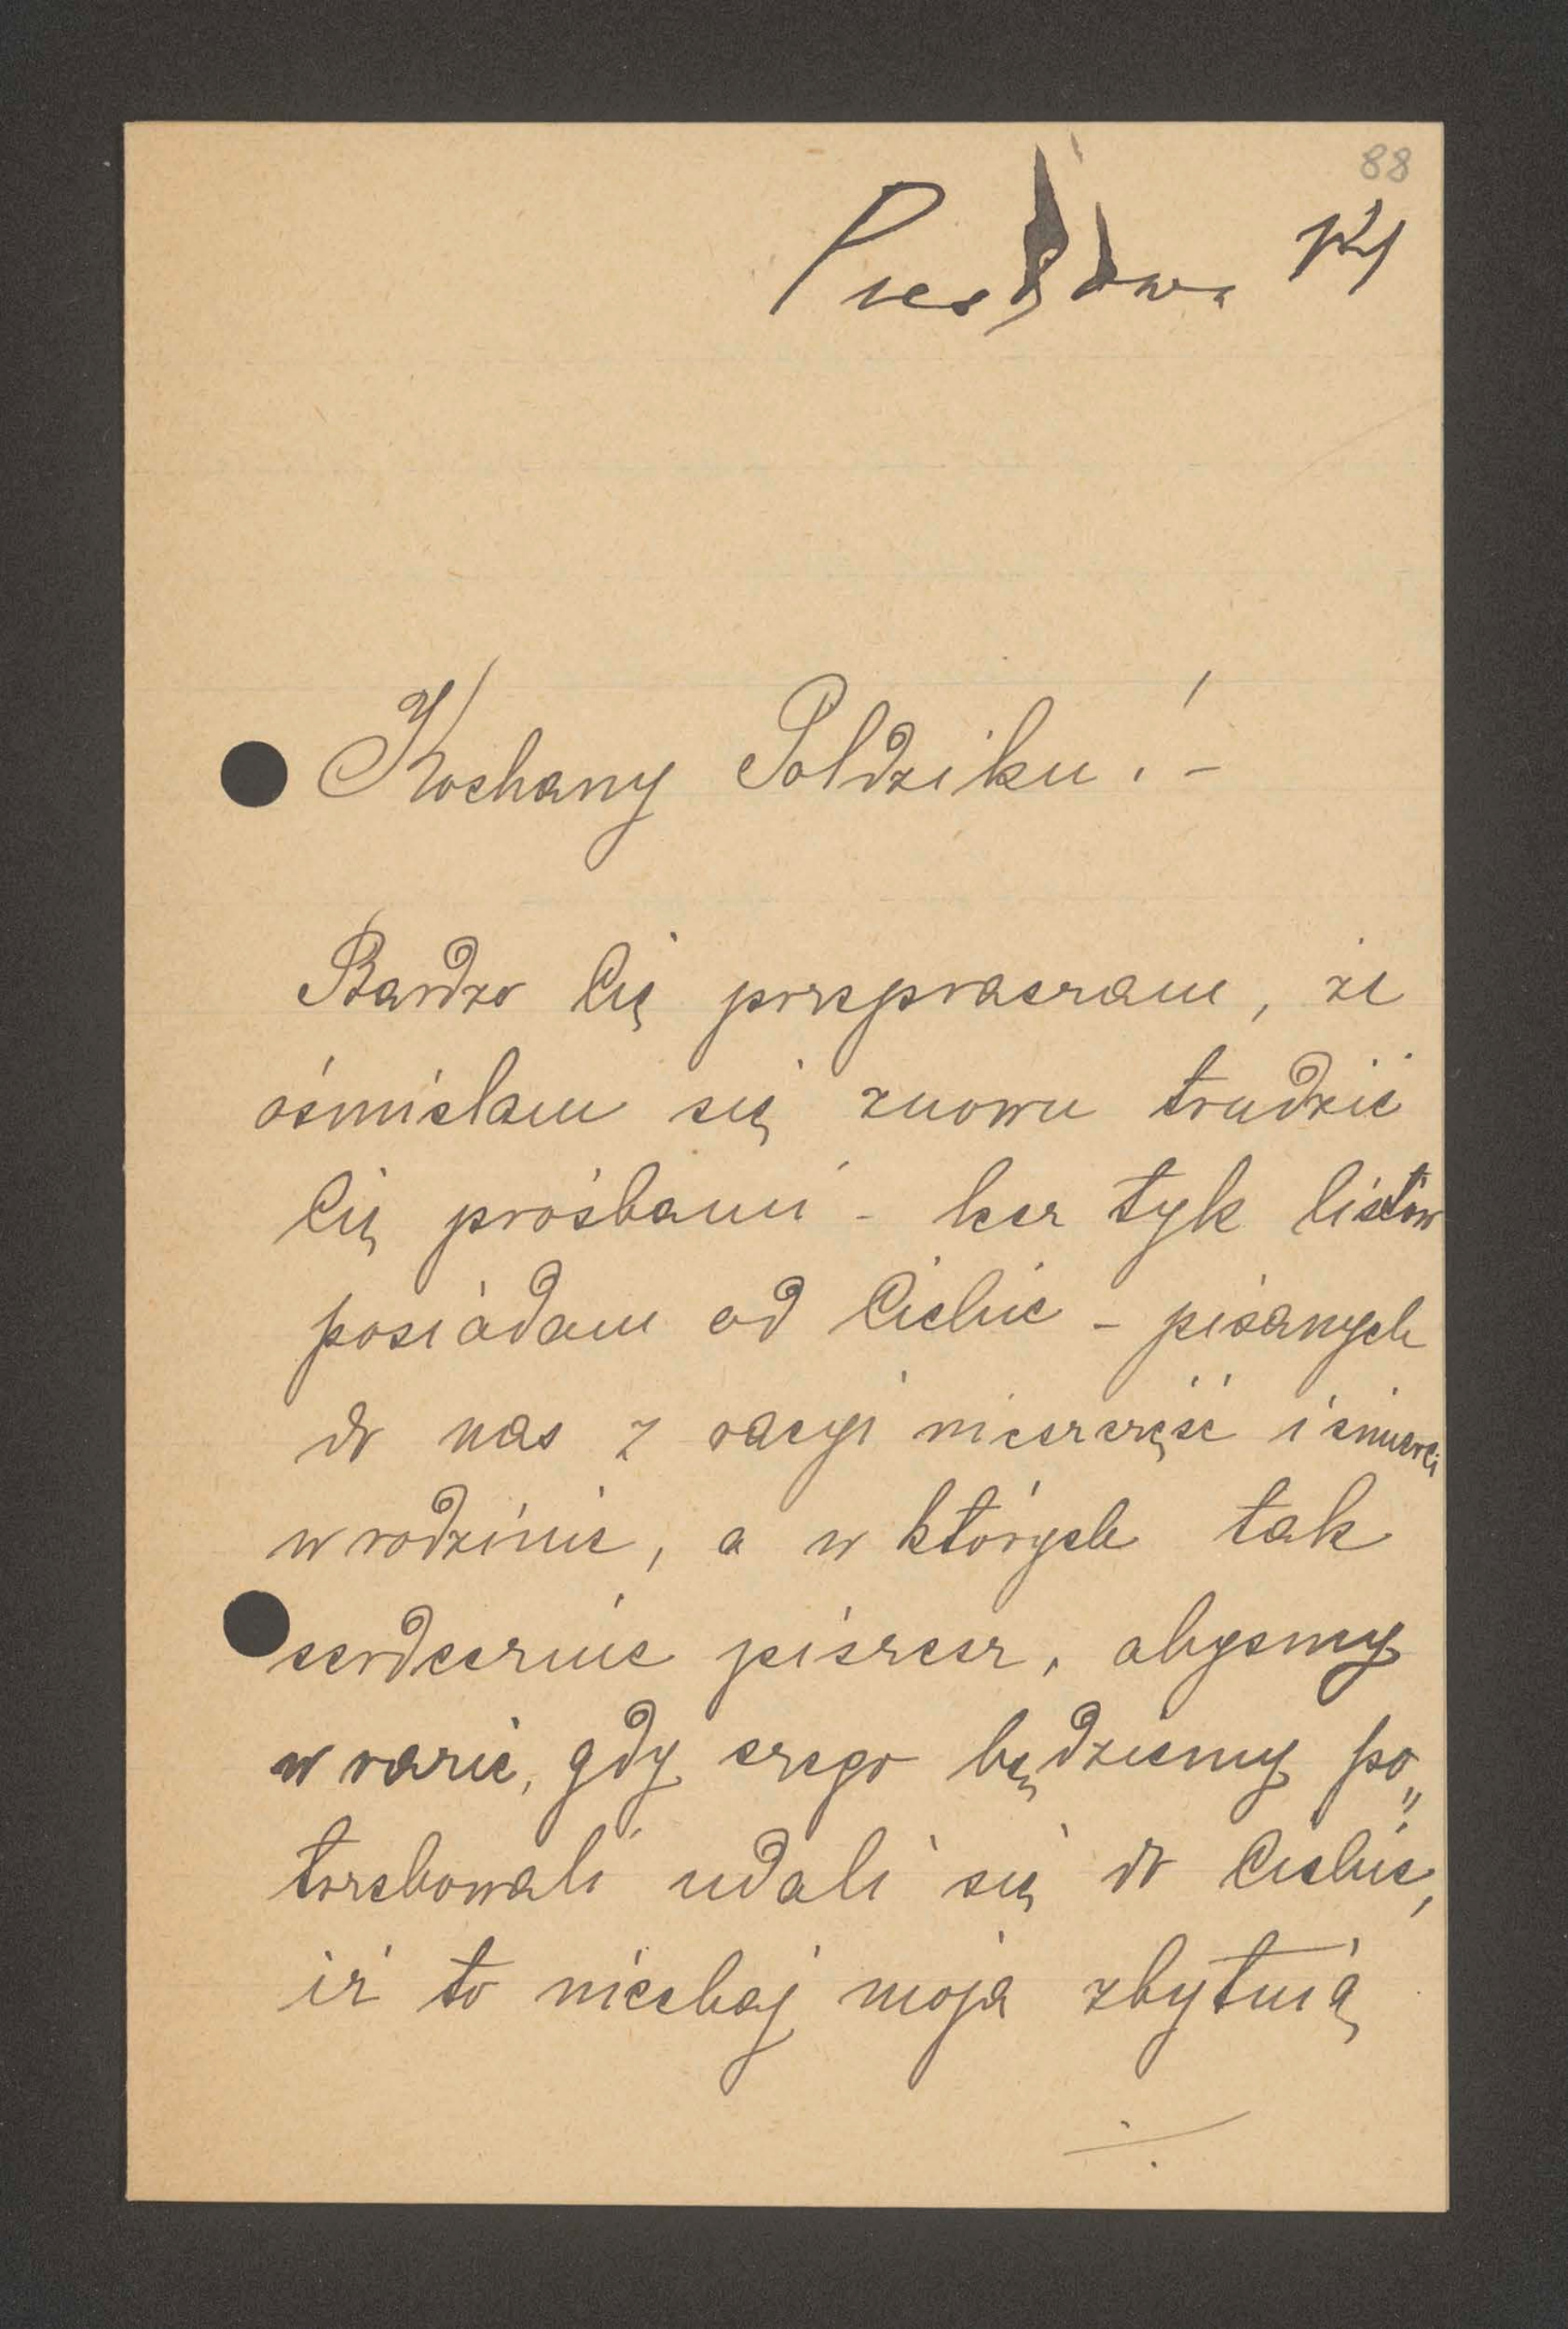 88
Kochany Poldziku! -
Bardzo Cię przepraszam, że
ośmielam się znowu trudzić
Cię prośbami - lecz tyle listów
posiadam od Ciebie - pisanych
do nas z racyi nieszczęść i śmierci
w rodzinie, a w których tak
serdecznie piszesz, abyśmy
w razie, gdy czego będziemy po„
trzebowali udali się do Ciebie,
iż to niechaj moją zbytnią
./.